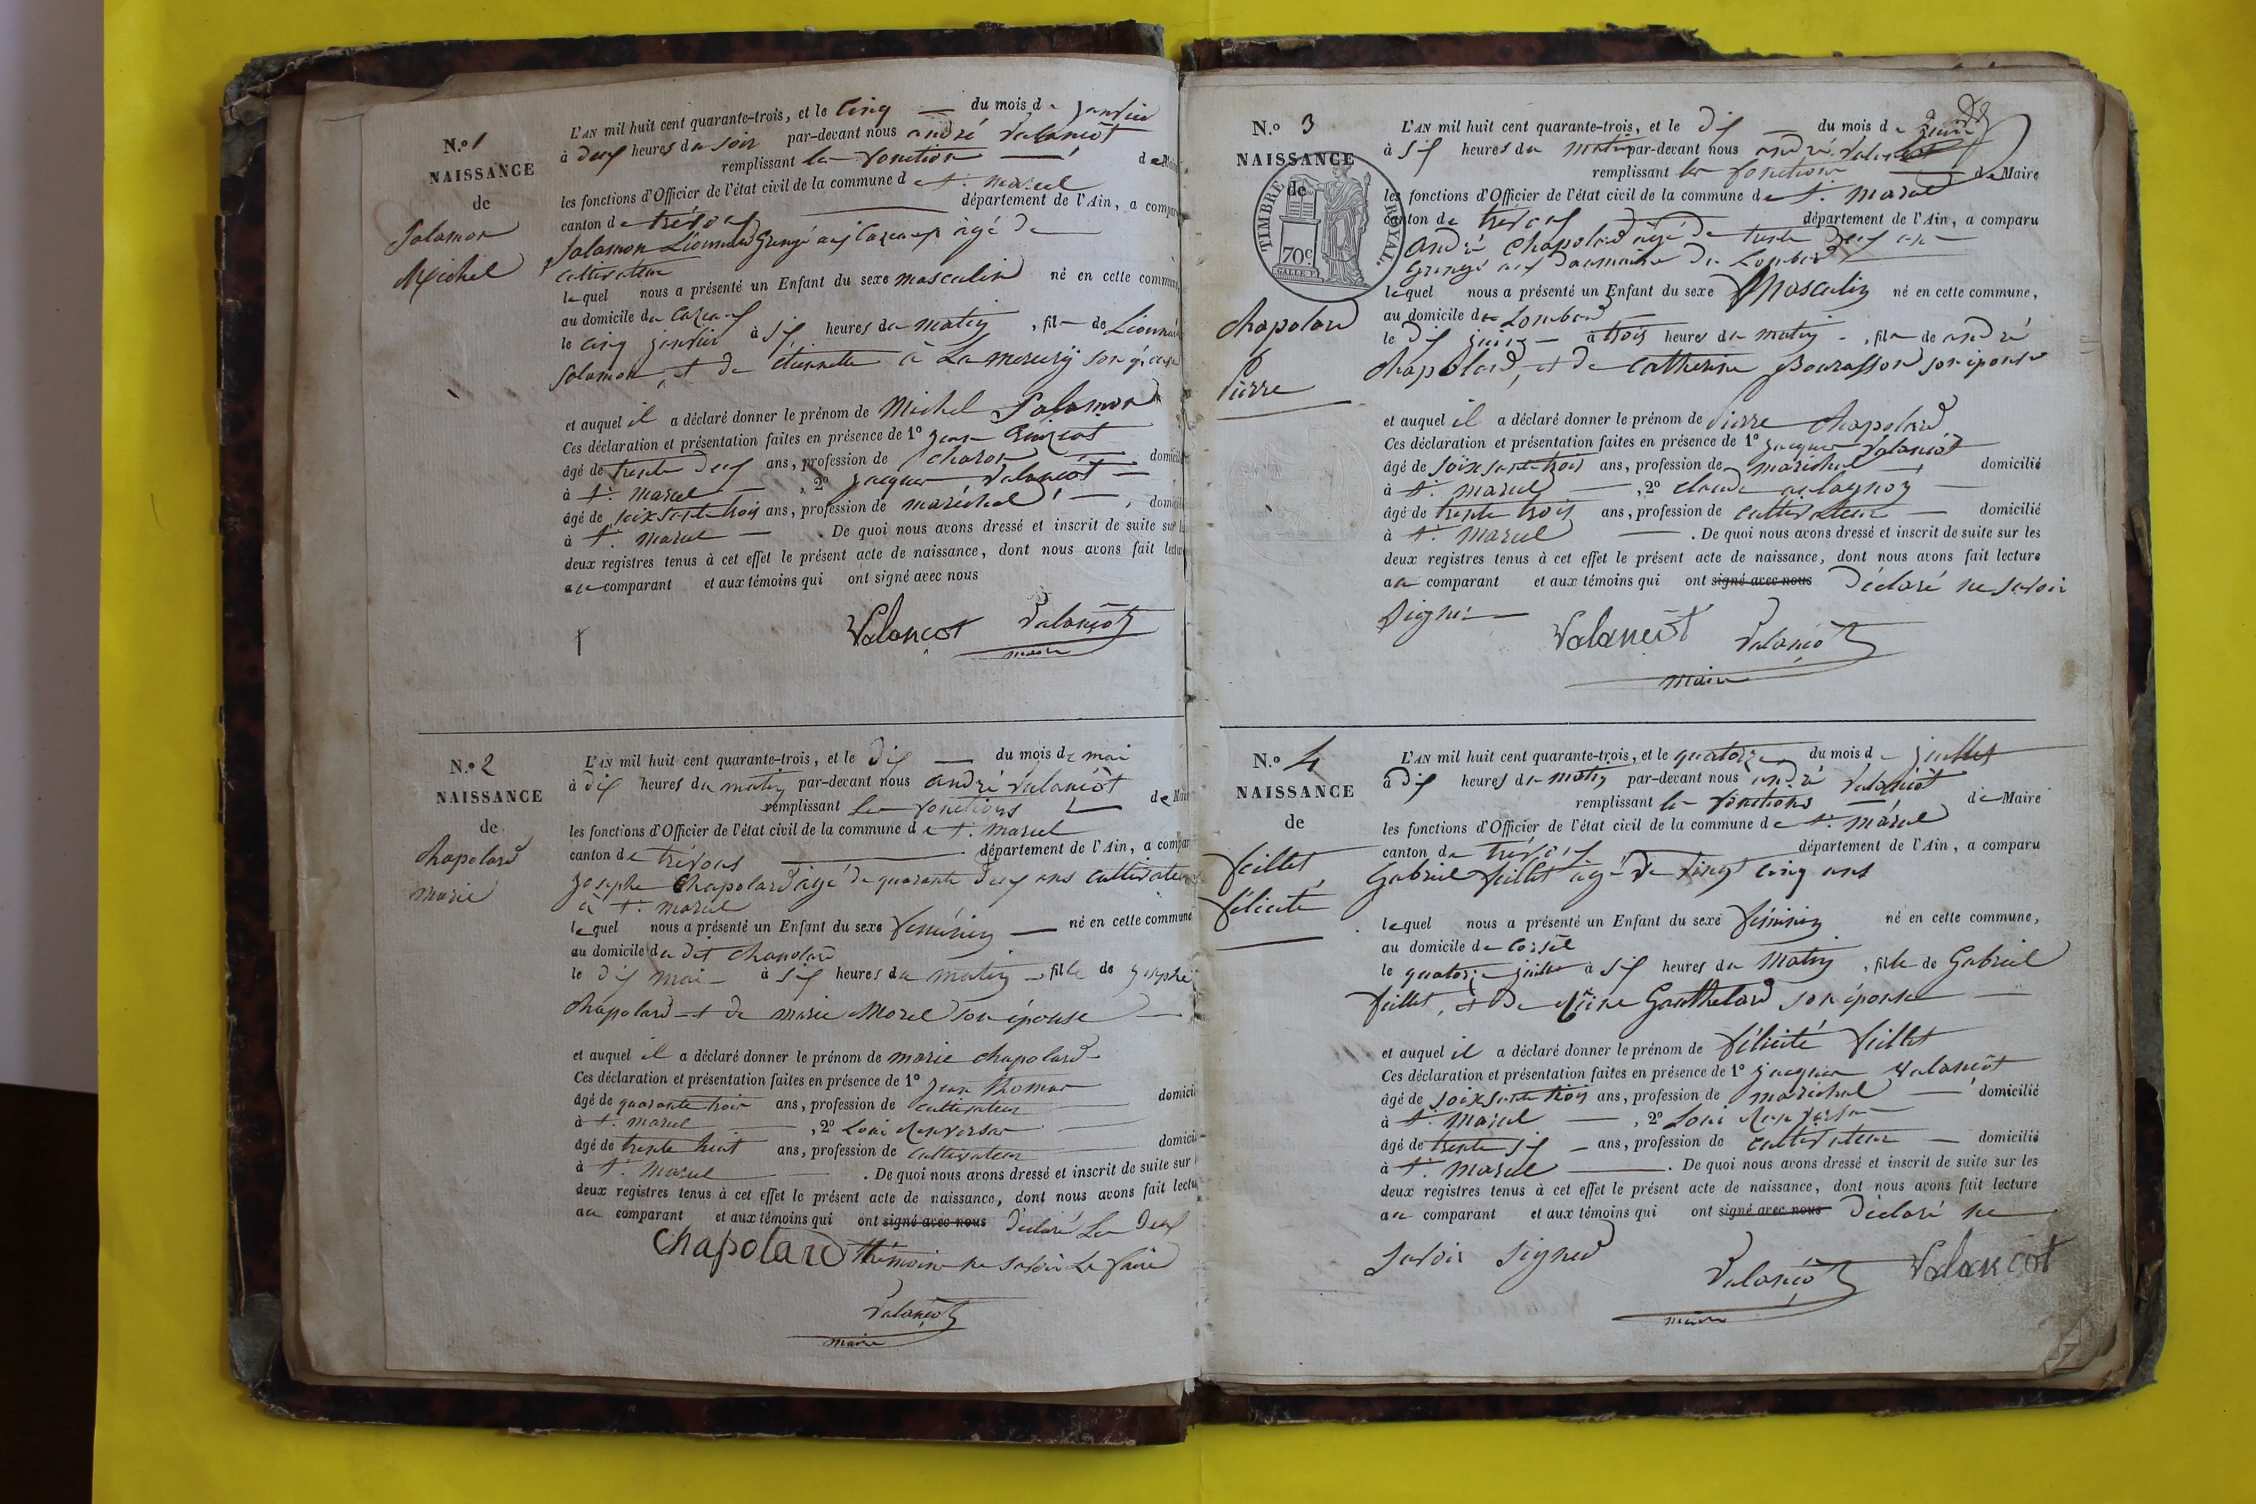 N.º 1
NAISSANCE
de
Salamon
Michel
L'AN mil huit cent quarante-trois, et le cinq du mois de janvier
à deux heures du soir par-devant nous andré Valancôt
remplissant les fonction de Maire
les fonctions d'Officier de l'état civil de la commune de St. marcel
canton de trévoux département de l'Ain, a comparu
Salamon Léonnard Grangé aux agé de
cultivateur
lequel nous a présenté un Enfant du sexe masculin né en cette commune,
au domicile du
le cinq janvier à six heures du matin, fils de Léonnard
Salamon et de étiennette à La son épouse
et auquel il a déclaré donner le prénom de Michel Salamon
Ces déclaration et présentation faites en présence de 1º jean
âgé de trente deux ans, profession de charon domicilié
à St. marcel, 2º jacques Valancôt
âgé de soixsante trois ans, profession de maréchal, domicilié
à St. marcel. De quoi nous avons dressé et inscrit de suite sur les
deux registres tenus à cet effet le présent acte de naissance, dont nous avons fait lecture
au comparant et aux témoins qui ont signé avec nous
Valançot Valançôt
maire
N.º 2
NAISSANCE
de
Chapolard
marie
L'AN mil huit cent quarante-trois, et le dix du mois de mai
à dix heures du matin par-devant nous andré Valancôt
remplissant les fonctions de Maire
les fonctions d'Officier de l'état civil de la commune de St. marcel
canton de trévoux département de l'Ain, a comparu
josephe Chapolard agé de quarante deux ans cultivateur
à St. marcel
lequel nous a présenté un Enfant du sexe féminin né en cette commune
au domicile du dit Chapolard
le dix mai à six heures du matin, fille de josephe
Chapolard et de marie Morel son épouse
et auquel il a déclaré donner le prénom de marie Chapolard
Ces déclaration et présentation faites en présence de 1º jean thomas
âgé de quarante trois ans, profession de cultivateur domicilié
à St. marcel, 2º Loui
âgé de trente huit ans, profession de cultivateur domicilié
à St. marcel. De quoi nous avons dressé et inscrit de suite sur les
deux registres tenus à cet effet le présent acte de naissance, dont nous avons fait lecture
au comparant et aux témoins qui ont signé avec nous déclaré Les deux
Chapolard thémoins ne savoir Le faire
Valançôt
maire
N.º 3
NAISSANCE
de
TIMBRE ROYAL.
70c.
Chapolard
Pierre
L'AN mil huit cent quarante-trois, et le dix du mois de juin
à six heures du matin par-devant nous andré Valancôt
remplissant les fonctions de Maire
les fonctions d'Officier de l'état civil de la commune de St. marcel
canton de trévoux département de l'Ain, a comparu
andré Chapolard agé de trente deux ans
Grangé au domaine de Lombard
lequel nous a présenté un Enfant du sexe Masculin né en cette commune,
au domicile de Lombard
le dix juin à trois heures du matin, fils de andré
Chapolard, et de Catherine Bourasson son épouse
et auquel il a déclaré donner le prénom de Pierre Chapolard
Ces déclaration et présentation faites en présence de 1º jacques Valancôt
âgé de soixsante trois ans, profession de maréchal domicilié
à St. marcel, 2º claude
âgé de trente trois ans, profession de cultivateur domicilié
à St. marcel. De quoi nous avons dressé et inscrit de suite sur les
deux registres tenus à cet effet le présent acte de naissance, dont nous avons fait lecture
au comparant et aux témoins qui ont signé avec nous déclaré ne savoir
signer
Valancôt Valançôt
maire
N.º 4
NAISSANCE
de
feillet
félicité
L'AN mil huit cent quarante-trois, et le quatorze du mois de juillet
à dix heures du matin par-devant nous andré Valancôt
remplissant les fonctions de Maire
les fonctions d'Officier de l'état civil de la commune de St. marcel
canton de trévoux département de l'Ain, a comparu
Gabriel feillet agé de vingt cinq ans
lequel nous a présenté un Enfant du sexe féminin né en cette commune,
au domicile de
le quatorze juillet à six heures du matin, fille de Gabriel
feillet, et de Gonthelard son épouse
et auquel il a déclaré donner le prénom de félicité feillet
Ces déclaration et présentation faites en présence de 1º jacques Valancôt
âgé de soixsante trois ans, profession de maréchal domicilié
à St. marcel, 2º Loui
âgé de trente six ans, profession de cultivateur domicilié
à St. marcel. De quoi nous avons dressé et inscrit de suite sur les
deux registres tenus à cet effet le présent acte de naissance, dont nous avons fait lecture
au comparant et aux témoins qui ont signé avec nous déclaré ne
savoir signer
Valançôt Valancôt
maire